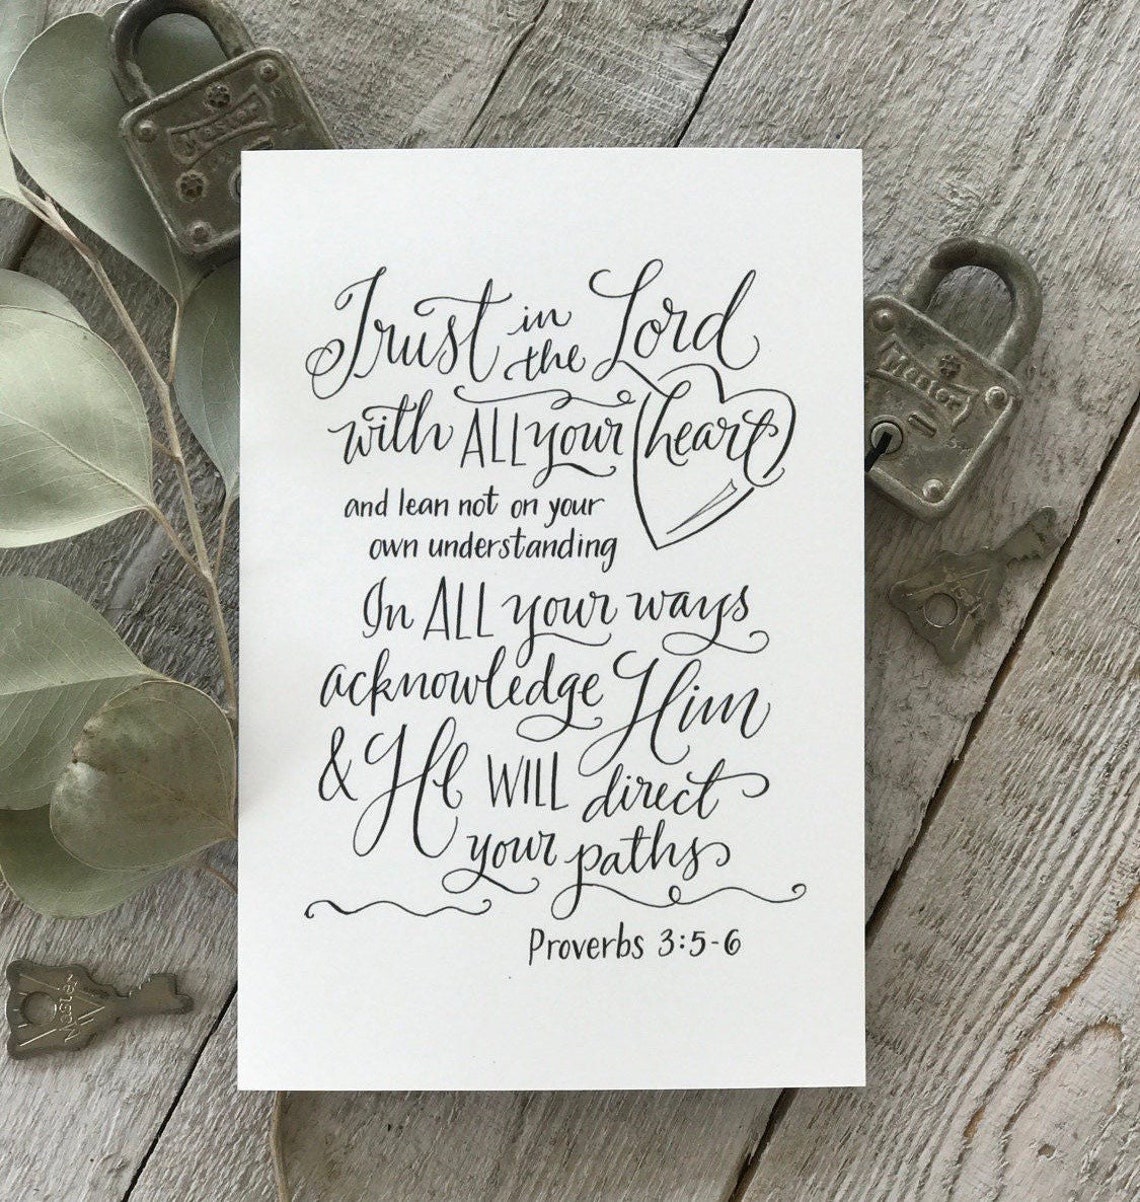 Master
Master
Trust in the Lord
with ALL your heart
and lean not on your
own understanding
In ALL your ways
acknowledge Him
& He WILL direct
your paths
Proverbs 3:5-6
Master